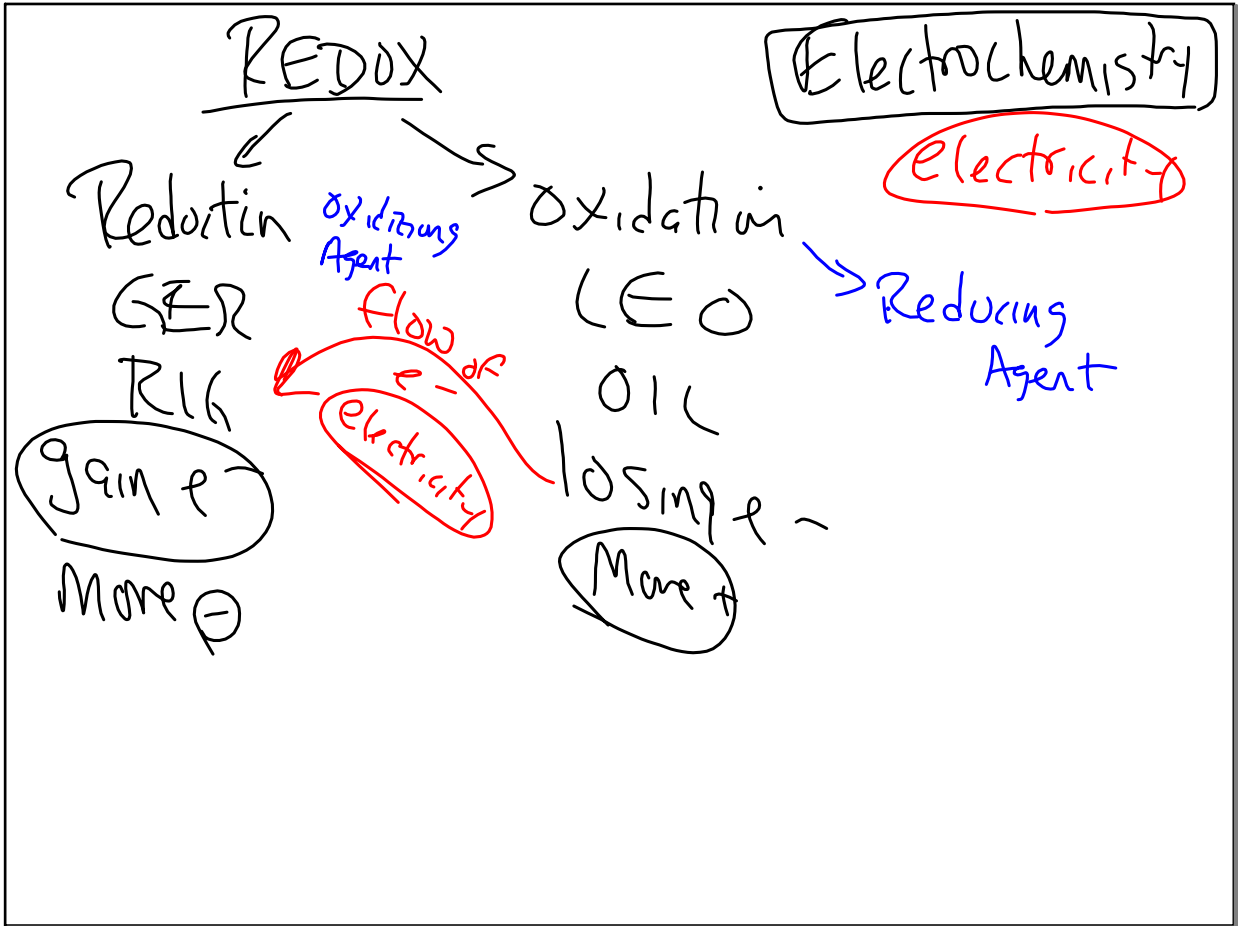 REDOX
Electrochemistry
electricity
Reduction
Oxidizing
Agent
Oxidation
Reducing
Agent
GER
RIG
gain e-
More -
flow of
e-
electricity
LEO
OIL
losing e-
More +